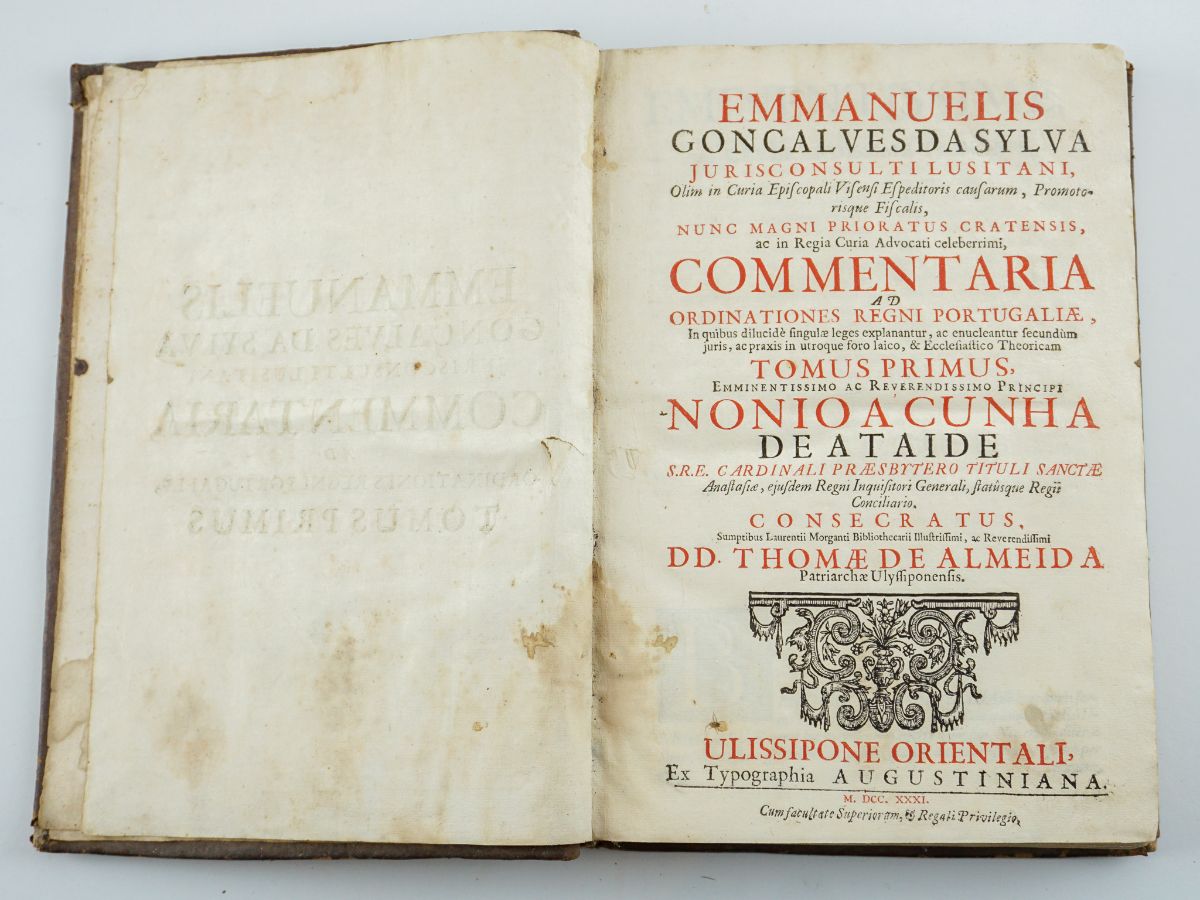 EMMANUELIS
GONCALVES DA SYLVA
JURISCONSULTI LUSITANI,
Olim in Curia Epiſcopali Viſenſi Eſpeditoris cauſarum, Promoto-
risque Fiſcalis,
NUNC MAGNI PRIORATUS CRATENSIS,
ac in Regia Curia Advocati celeberrimi,
COMMENTARIA
AD
ORDINATIONES REGNI PORTUGALIÆ,
In quibus dilucidè ſingulæ leges explanantur, ac enucleantur ſecundùm
juris, ac praxis in utroque foro laico, & Eccleſiaſtico Theoricam
TOMUS PRIMUS,
EMMINENTISSIMO AC REVERENDISSIMO PRINCIPI
NONIO A CUNHA
DE ATAIDE
S.R.E. CARDINALI PRÆSBYTERO TITULI SANCTÆ
Anaſtaſiæ, ejuſdem Regni Inquiſitori Generali, ſtatûsque Regii
Conciliario,
CONSECRATUS,
Sumptibus Laurentii Morganti Bibliothecarii Illuſtriſſimi, ac Reverendiſſimi
DD. THOMÆ DE ALMEIDA
Patriarchæ Ulyſſiponenſis.
ULISSIPONE ORIENTALI,
Ex Typographia AUGUSTINIANA.
M. DCC. XXXI.
Cum facultate Superiorum, & Regali Privilegio.